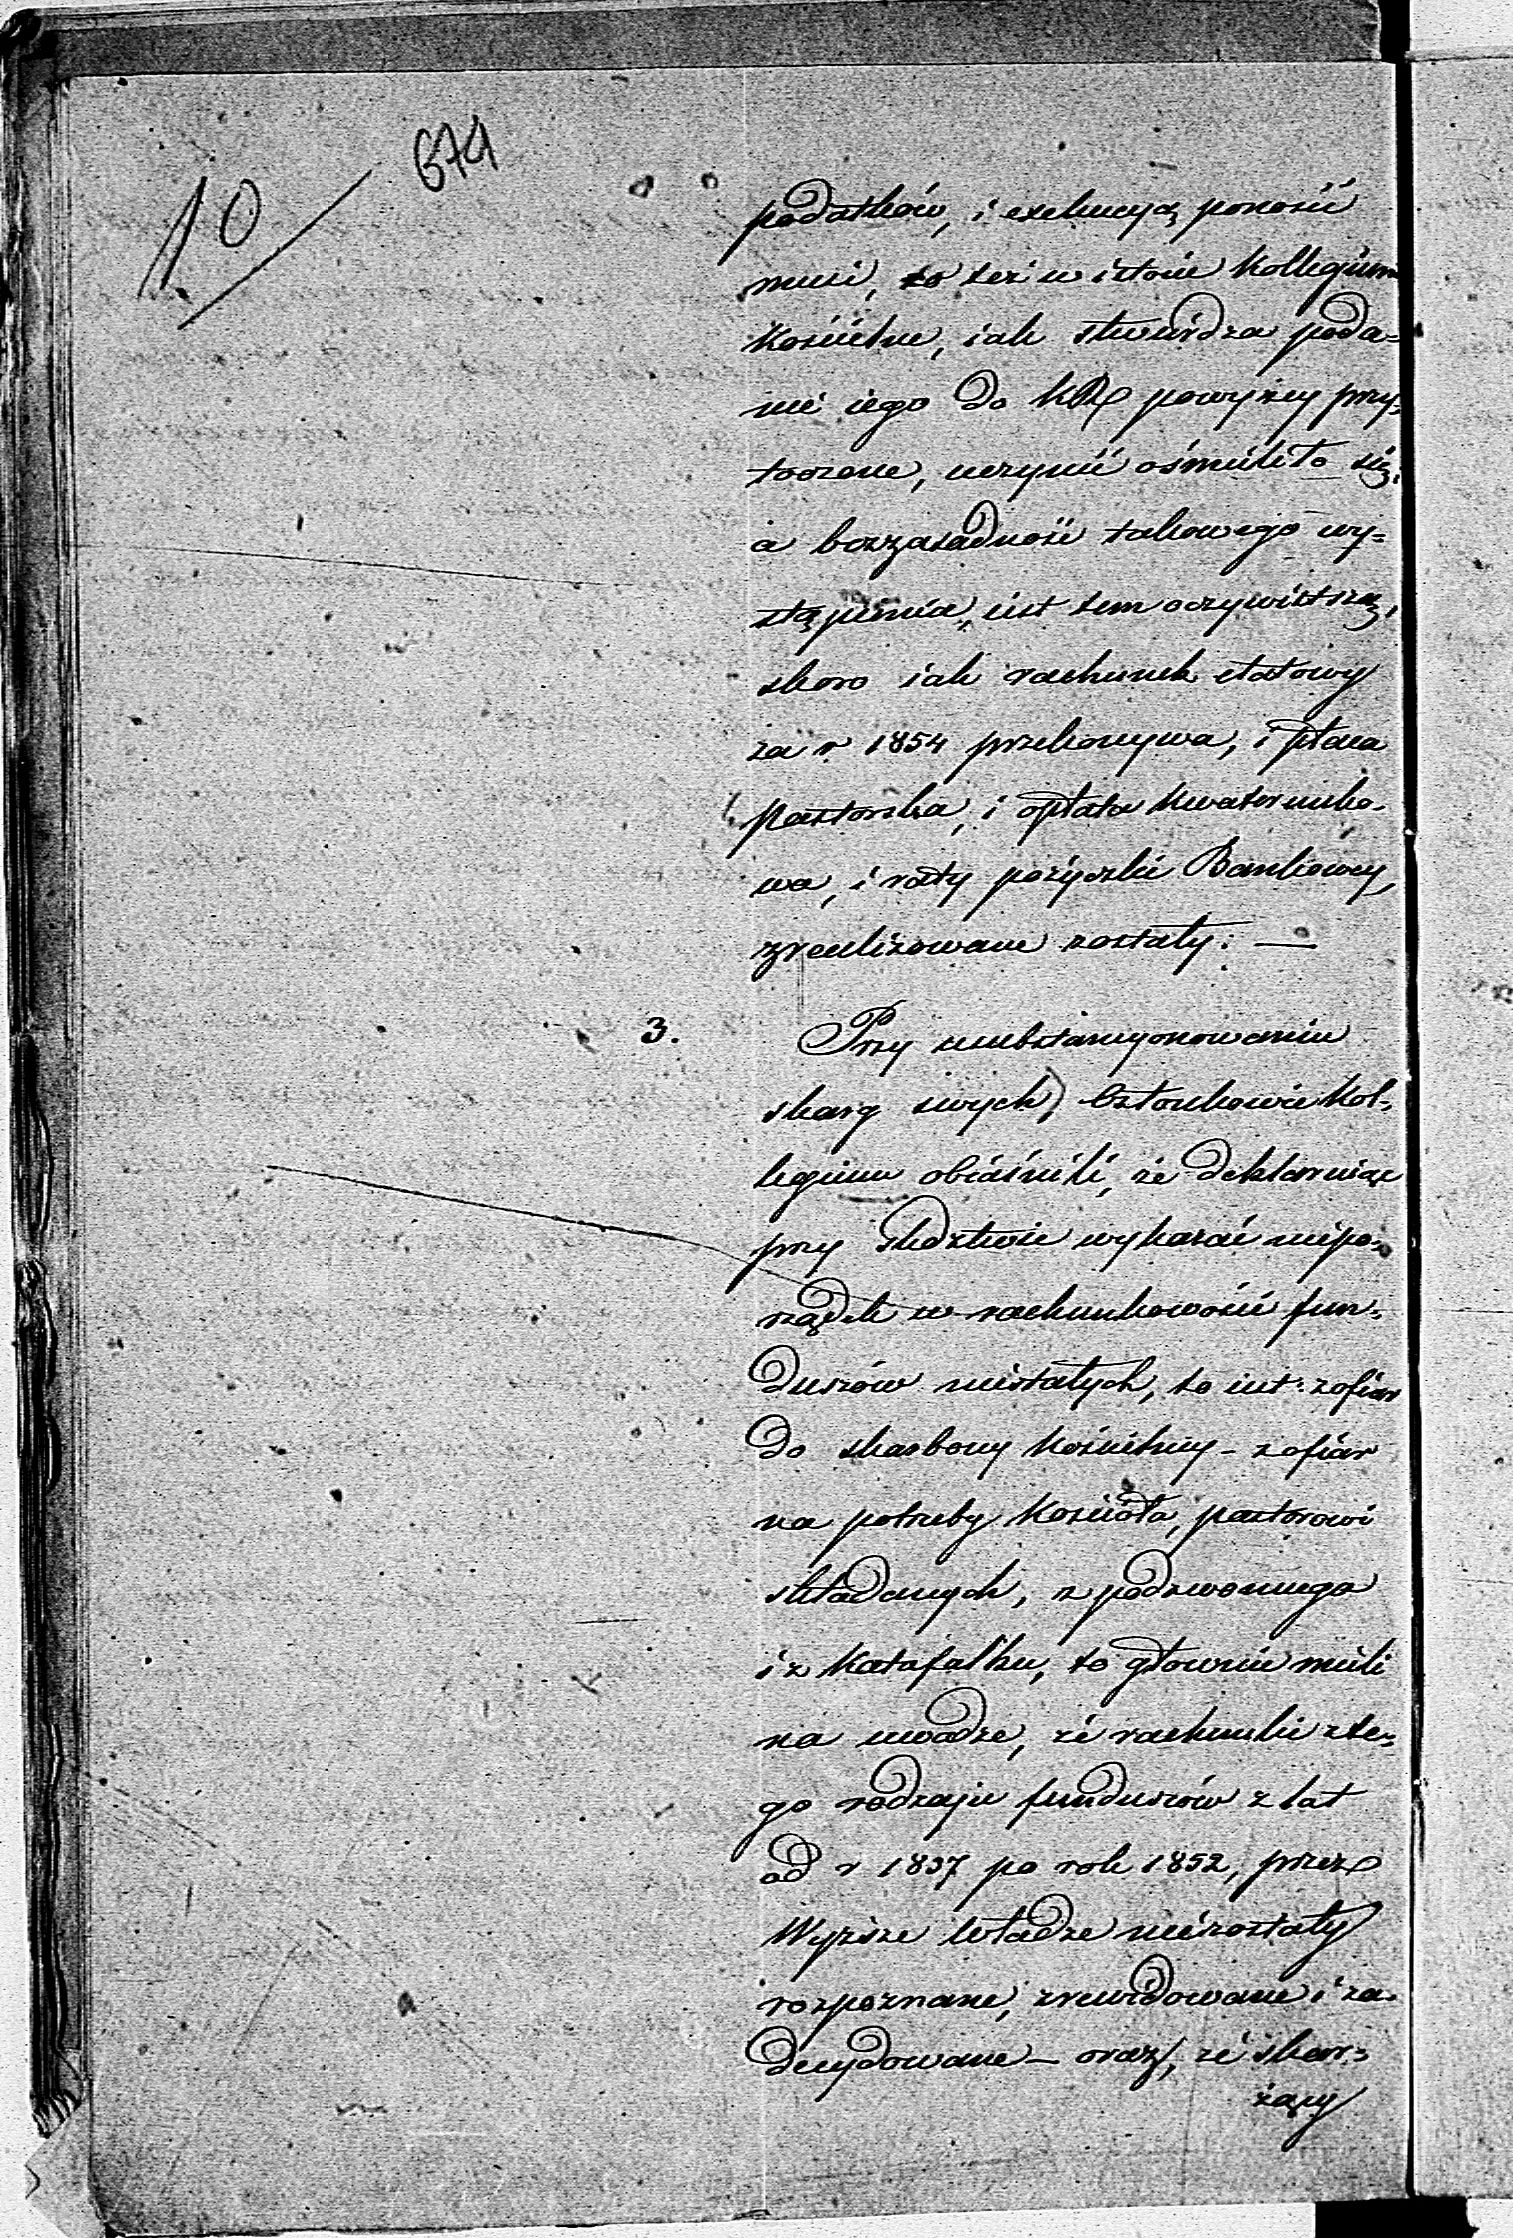 10
674
podatków, i exekucyą ponosić
musi, to też w istocie Kollegium
Kościelne, iak stwierdza poda-
nie iego do KR powyżey przy-
toczone, uczynić ośmieliło się,
a bezzasadność takowego wy-
stąpienia, iest tem oczywistszą,
skoro iak rachunek etatowy
za r 1854 przekonywa, i płaca
Pastorska, i opłata kwaterunko-
wa, i raty pożyczki Bankowey,
zrealizowane zostały: —
3. Przy usubstancyonowaniu
skarg swych, Członkowie Kol-
legium obiaśnili, że deklaruiąc
przy śledztwie wykazać niepo-
rządek w rachunkowości fun-
duszów niestałych, to iest: z ofiar
do skarbony Kościelney - z ofiar
na potrzeby Kościoła, pastorowi
składanych, z podzwonnego
i z Katafalku, to głownie mieli
na uwadze, że rachunki z te-
go rodzaju funduszów z lat
od r 1837 po rok 1852, przez
Wyższe władze niezostały
rozpoznane, zrewidowane i za-
decydowane - oraz, że skar-
żący